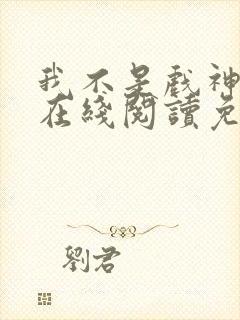 我不是戲神
在綫閱讀免
劉君